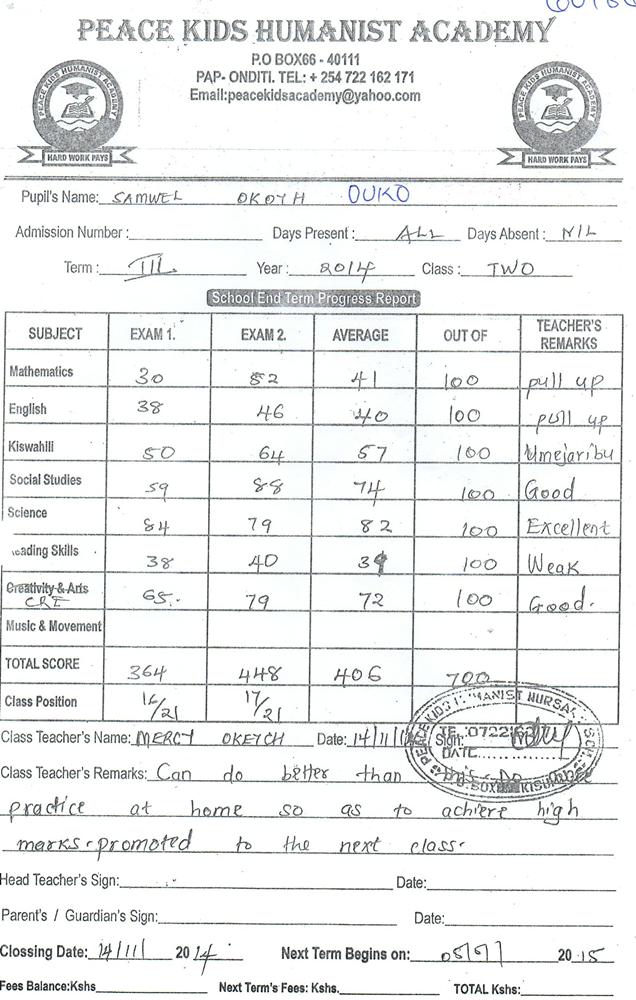 OUKO
PEACE KIDS HUMANIST ACADEMY
P.O BOX66 - 40111
PAP- ONDITI. TEL: + 254 722 162 171
Email:peacekidsacademy@yahoo.com
PEACE KIDS HUMANIST ACADEMY
HARD WORK PAYS
PEACE KIDS HUMANIST ACADEMY
HARD WORK PAYS
Pupil's Name: SAMWEL OKOTH OUKO
Admission Number : Days Present : ALL Days Absent : NIL
Term : III Year : 2014 Class : TWO
School End Term Progress Report
SUBJECT EXAM 1. EXAM 2. AVERAGE OUT OF TEACHER'S REMARKS
Mathematics 30 52 41 100 pull up
English 38 46 40 100 pull up
Kiswahili 50 64 57 100 Umejaribu
Social Studies 59 88 74 100 Good
Science 84 79 82 100 Excellent
eading Skills 38 40 39 100 Weak
Creativity & Arts
CRE 65 79 72 100 Good.
Music & Movement
TOTAL SCORE 364 448 406 700
Class Position 16/21 17/21
Class Teacher's Name: MERCY OKETCH Date: 14/11/ Sign:
PEACE KIDS HUMANIST NURSA SCH
TEL:0722
DATE
BOX KISUMU
Class Teacher's Remarks: Can do better than this. Do
practice at home so as to achieve high
marks. promoted to the next class.
Head Teacher's Sign: Date:
Parent's / Guardian's Sign: Date:
Clossing Date: 14/11/ 2014 Next Term Begins on: 2015
Fees Balance:Kshs Next Term's Fees: Kshs. TOTAL Kshs: